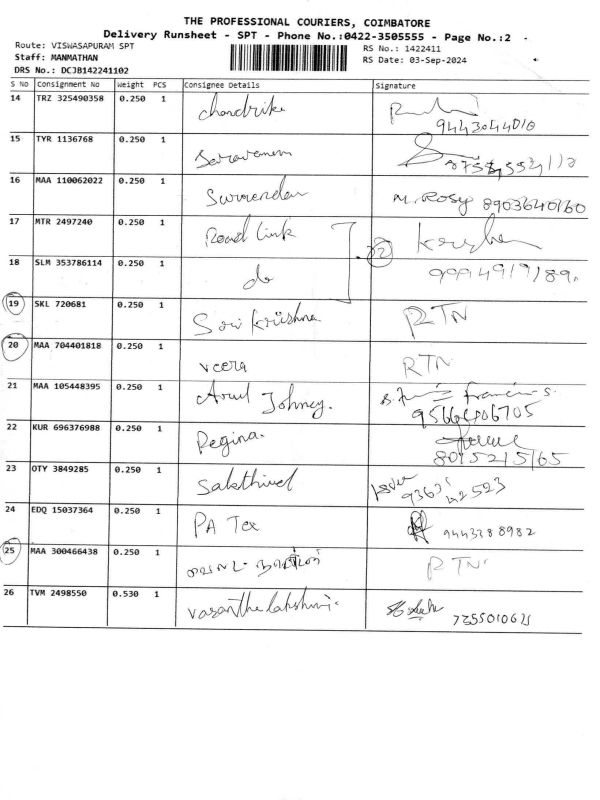 THE PROFESSIONAL COURIERS, COIMBATORE
Delivery Runsheet - SPT - Phone No.:0422-3505555 - Page No.:2
Route: VISWASAPURAM SPT
RS No.: 1422411
Staff: MANMATHAN
RS Date: 03-Sep-2024
DRS No.: DCJB142241102
S No Consignment No Weight PCS Consignee Details Signature
14 TRZ 325490358 0.250 1 chandrika
9443044010
15 TYR 1136768 0.250 1 Saravanan
16 MAA 110062022 0.250 1 Surrendar M. Rosy 8903640160
17 MTR 2497240 0.250 1 Road link
18 SLM 353786114 0.250 1 do
19 SKL 720681 0.250 1 Sow Krishna RTN
20 MAA 704401818 0.250 1 veera RTN
21 MAA 105448395 0.250 1 Arul Johney. Francis S.
9566406705
22 KUR 696376988 0.250 1 Regina.
8015215165
23 OTY 3849285 0.250 1 Sakthivel
24 EDQ 15037364 0.250 1 PA Tex 9443388982
25 MAA 300466438 0.250 1 RTN
26 TVM 2498550 0.530 1 vasanthe lakshmi.